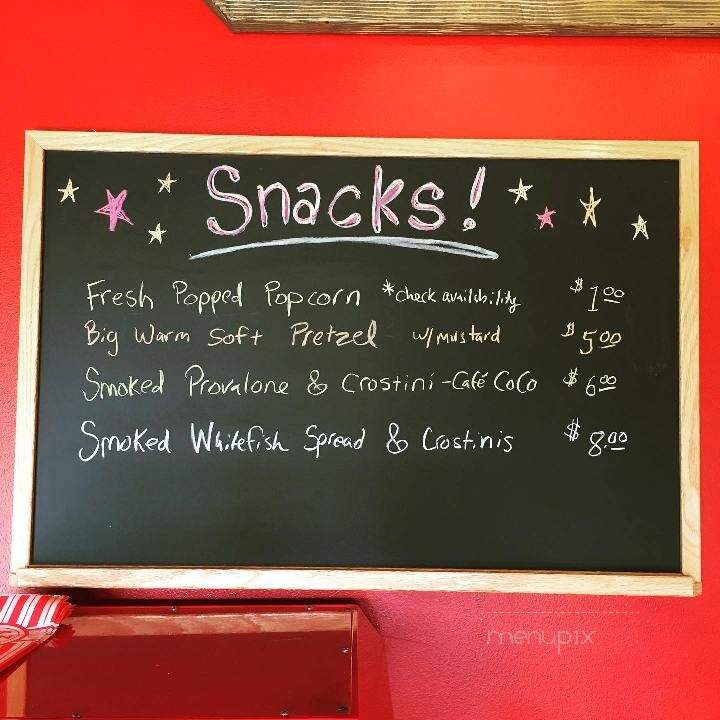 Snacks!
Fresh Popped Popcorn *check availbility $1.00
Big Warm Soft Pretzel w/mustard $5.00
Smoked Provalone & Crostini -Café CoCo $6.00
Smoked Whitefish Spread & Crostinis $8.00
menupix